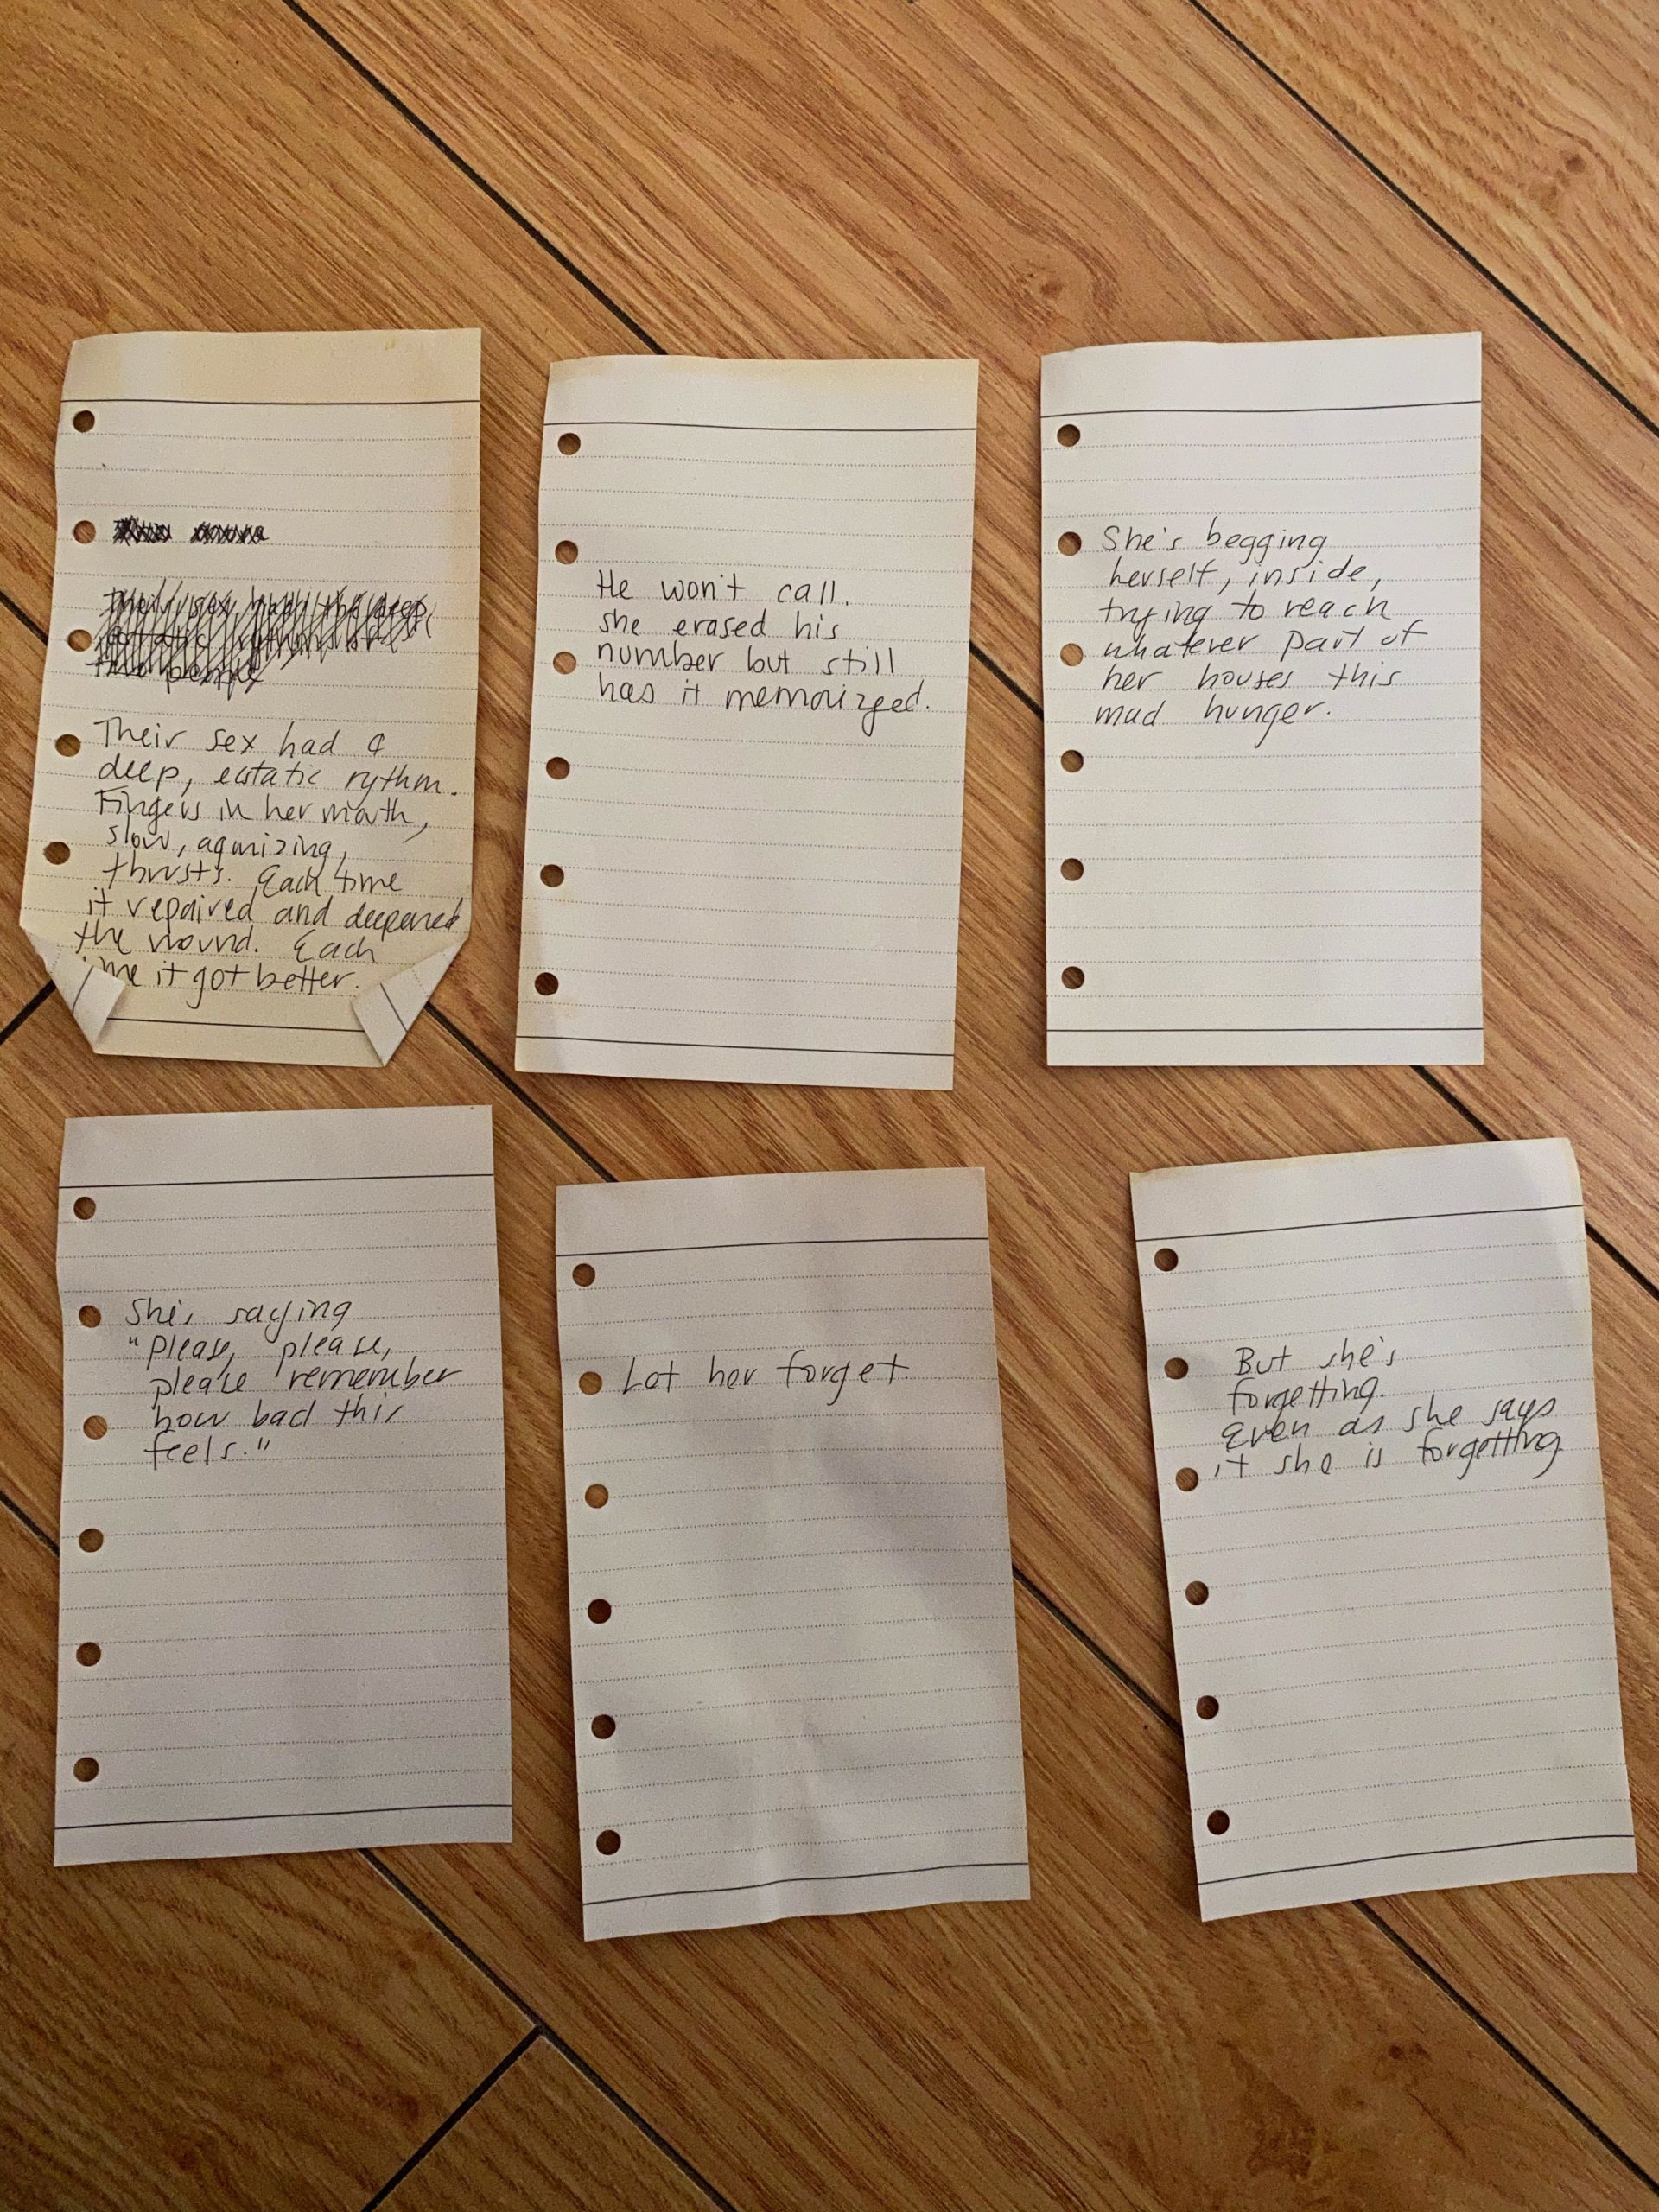 Their sex had the deep,
two people
Their sex had a
deep, ecstatic rythm.
Fingers in her mouth,
slow, agonizing,
thrusts. Each time
it repaired and deepened
the wound. Each
it got better.
He won't call.
she erased his
number but still
has it memorized.
She's begging
herself, inside,
trying to reach
whatever part of
her houses this
mad hunger.
She's saying
"please, please,
please remember
how bad this
feels."
Let her forget.
But she's
forgetting.
Even as she says
it she is forgetting